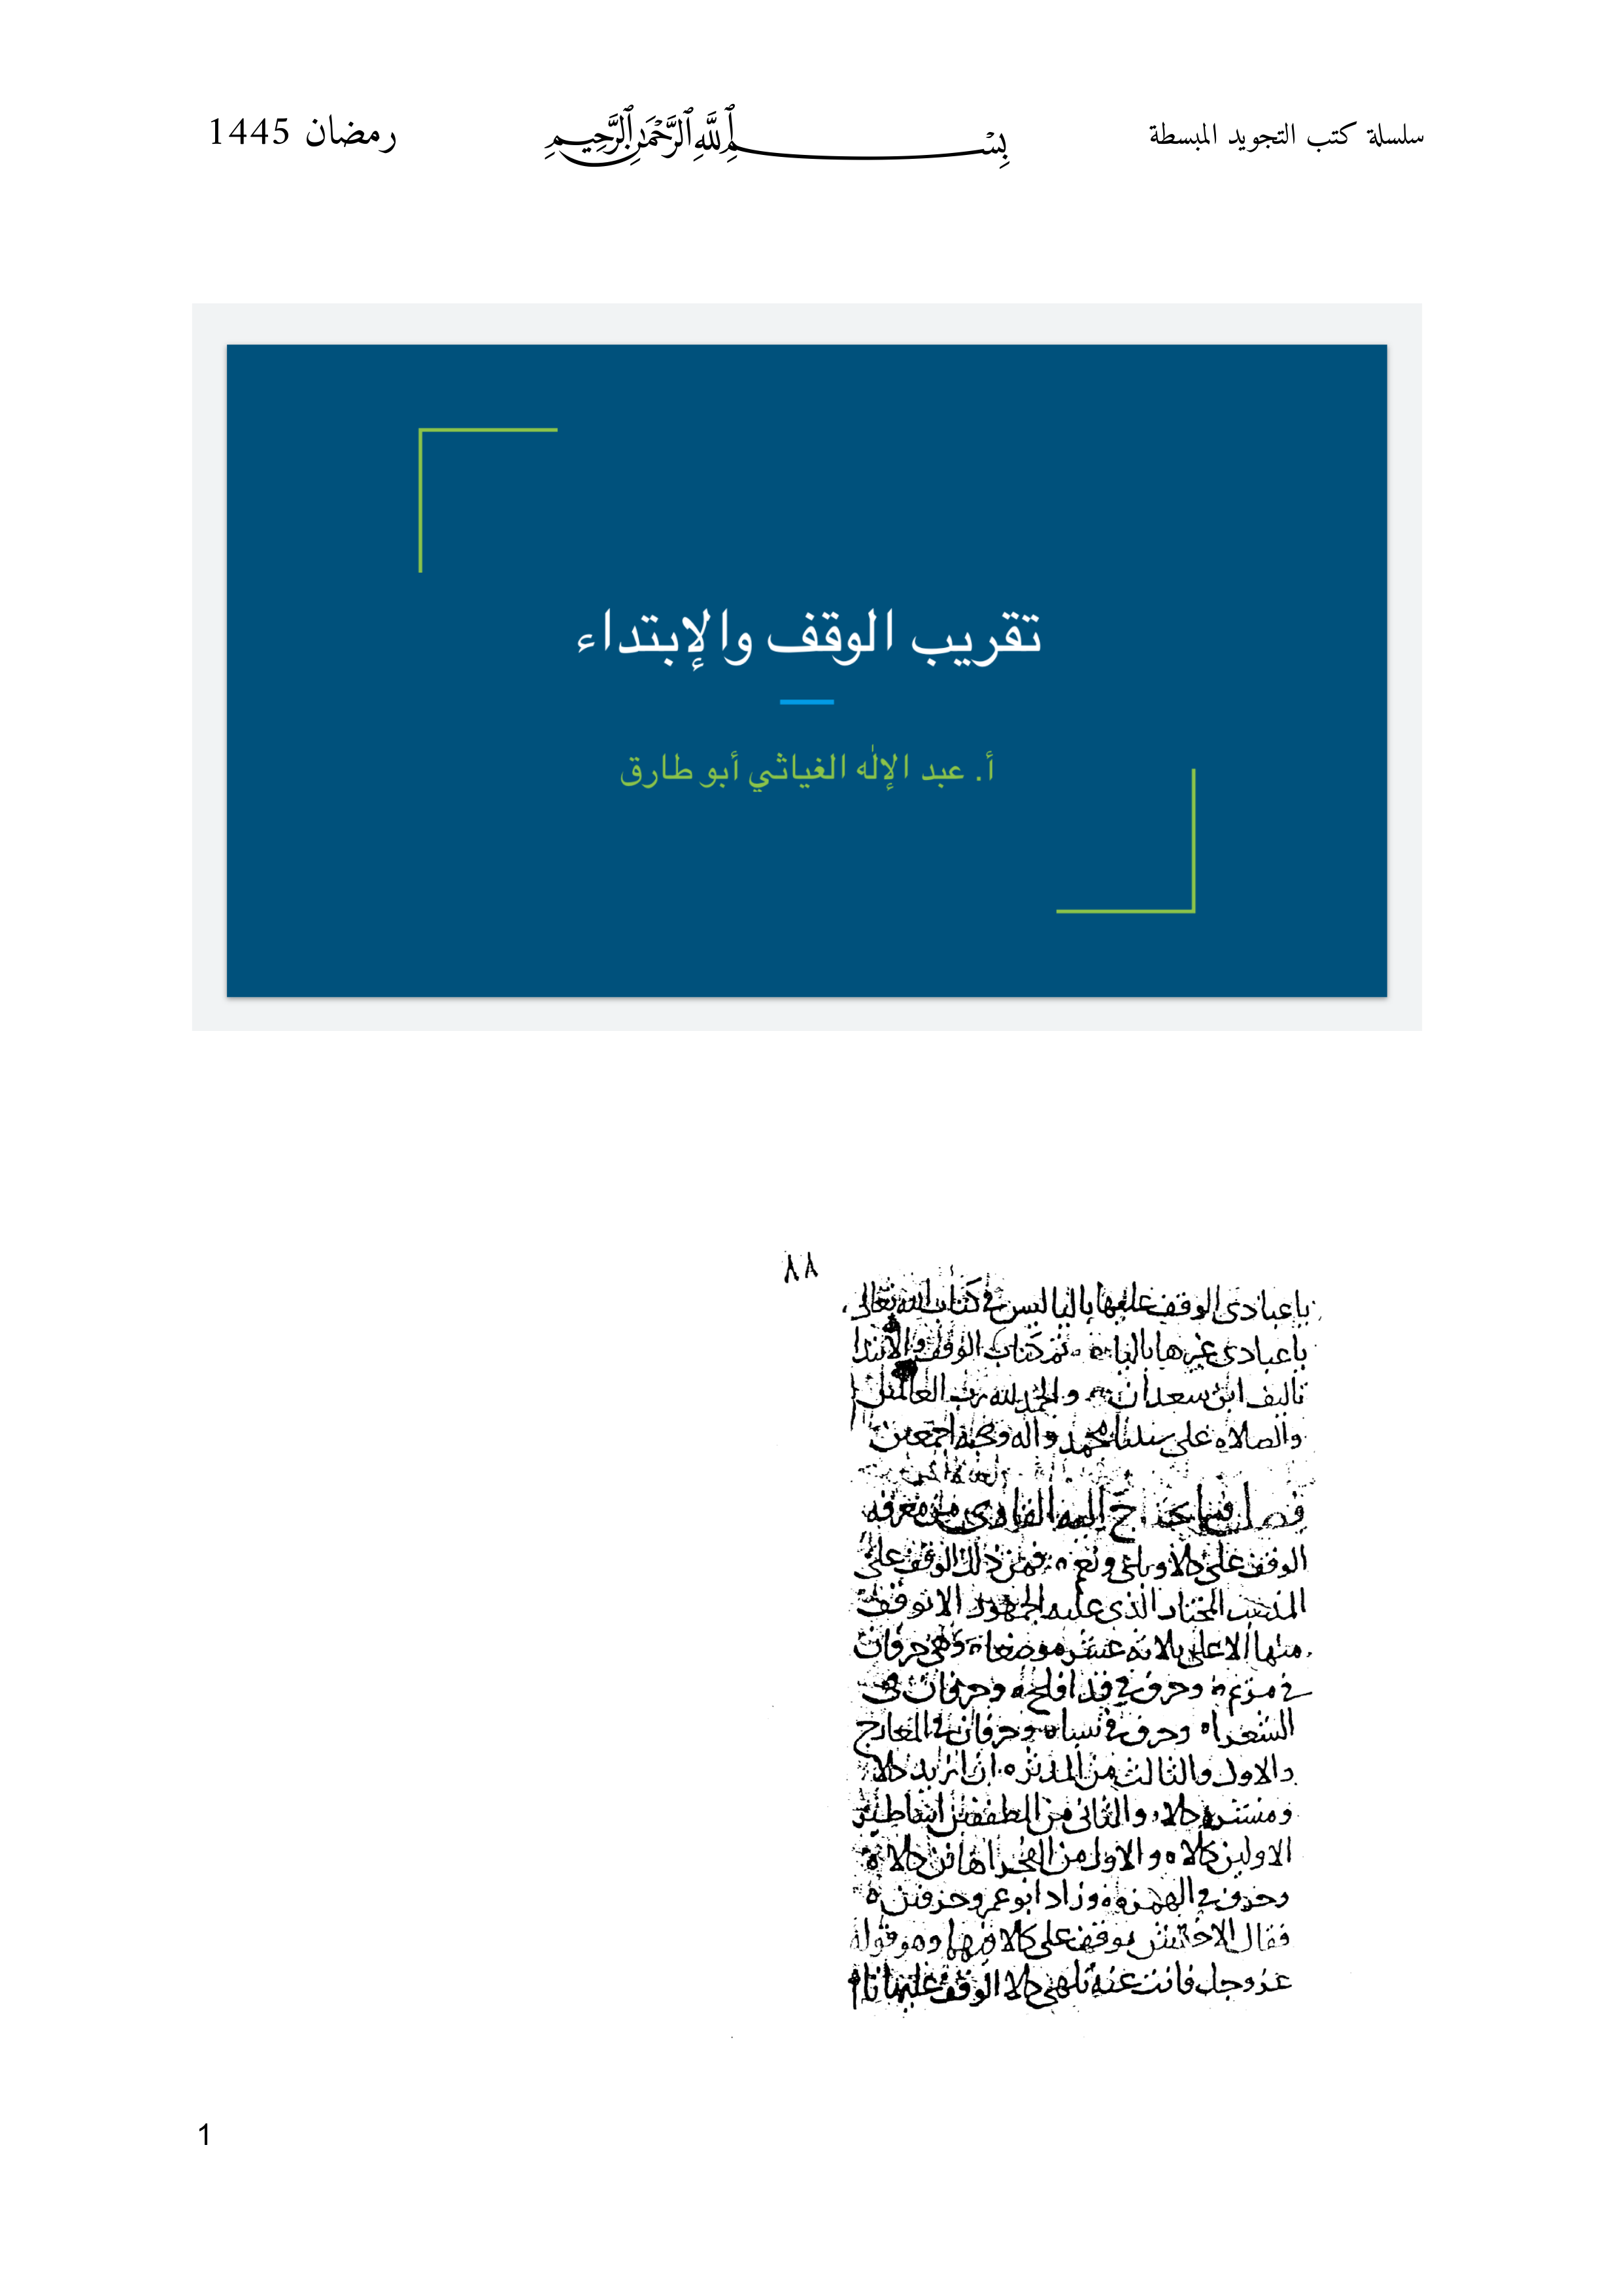 سلسلة كتب التجويد المبسطة
بِسْمِ اللَّهِ الرَّحْمَٰنِ الرَّحِيمِ
رمضان 1445
تقريب الوقف والإبتداء
أ. عبد الإله الغياثي أبو طارق
٨٨
ياعبادى الوقف عليها باليا ليس فى كتاب الله تعالى
ياعبادى غيرها باليا تم كتاب الوقف والابتدا
تاليف ابن سعدان والحمد لله رب العالمين
والصلاه على سيدنا محمد واله وصحبه اجمعين
فصل فيما يحتاج اليه القارى من معرفه
الوقف على كلا وبلى ونعم فمن ذلك الوقف على
المذهب المختار الذى عليه الجمهور الا توقف
منها الا على ثلاثه عشر موضعا وهى حرفان
فى مريم وحرف فى قد افلح وحرفان فى
الشعرا وحرف فى سبا وحرفان فى المعارج
والاول والثالث من المدثر ان ازيد كلا
ومنشره كلا والثانى من المطففين اساطير
الاولين كلا والاول من الفجر اهانن كلا
وحرف فى الهمزه وزاد ابو عمرو حرفين
فقال الاخفش يوقف على كلا فيها وهو قوله
عز وجل فانت عنه تلهى كلا الوقف عليها تام
1